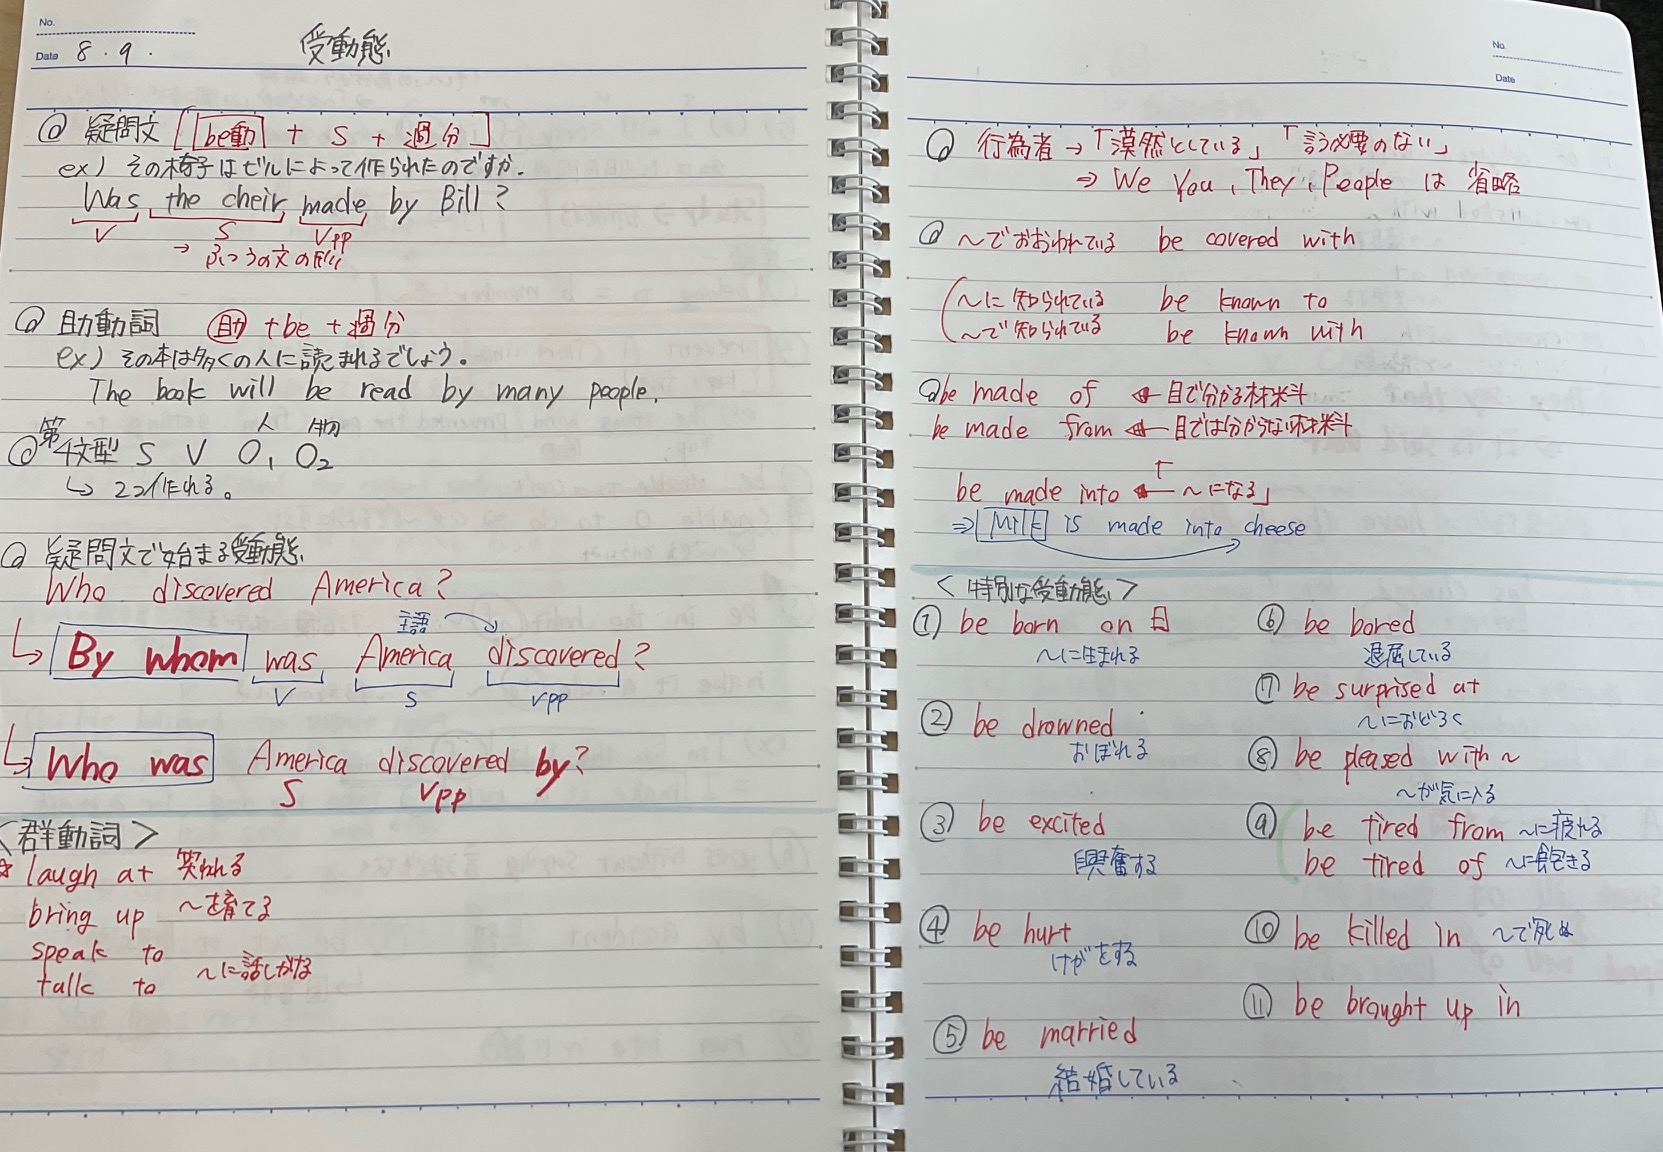 No.
Date 8.9.
受動態
疑問文 [be動 + S + 過分]
ex) その椅子はビルによって作られたのですか.
Was the cheir made by Bill?
V S Vpp
→ ふつうの文の形
助動詞 助 + be + 過分
ex) その本は多くの人に読まれるでしょう。
The book will be read by many people.
人 物
第4文型 S V O₁ O₂
↳ 2つ作れる。
疑問文で始まる受動態
Who discovered America?
主語
↳ By whom was America discovered?
V S Vpp
↳ Who was America discovered by?
S Vpp
<群動詞>
☆ laugh at 笑われる
bring up 〜を育てる
speak to
talk to 〜に話しかける
No.
Date
行為者 → 「漠然としている」「言う必要のない」
⇒ We You, They, People は 省略
〜でおおわれている be covered with
〜に知られている be known to
〜で知られている be known with
be made of ← 目で分かる材料
be made from ← 目では分からない材料
be made into ← 「〜になる」
⇒ Milk is made into cheese
<特別な受動態>
① be born on 日
〜に生まれる
② be drowned
おぼれる
③ be excited
興奮する
④ be hurt
けがをする
⑤ be married
結婚している
⑥ be bored
退屈している
⑦ be surprised at
〜におどろく
⑧ be pleased with 〜
〜が気に入る
⑨ be tired from 〜に疲れる
be tired of 〜に飽きる
⑩ be killed in 〜で死ぬ
⑪ be brought up in